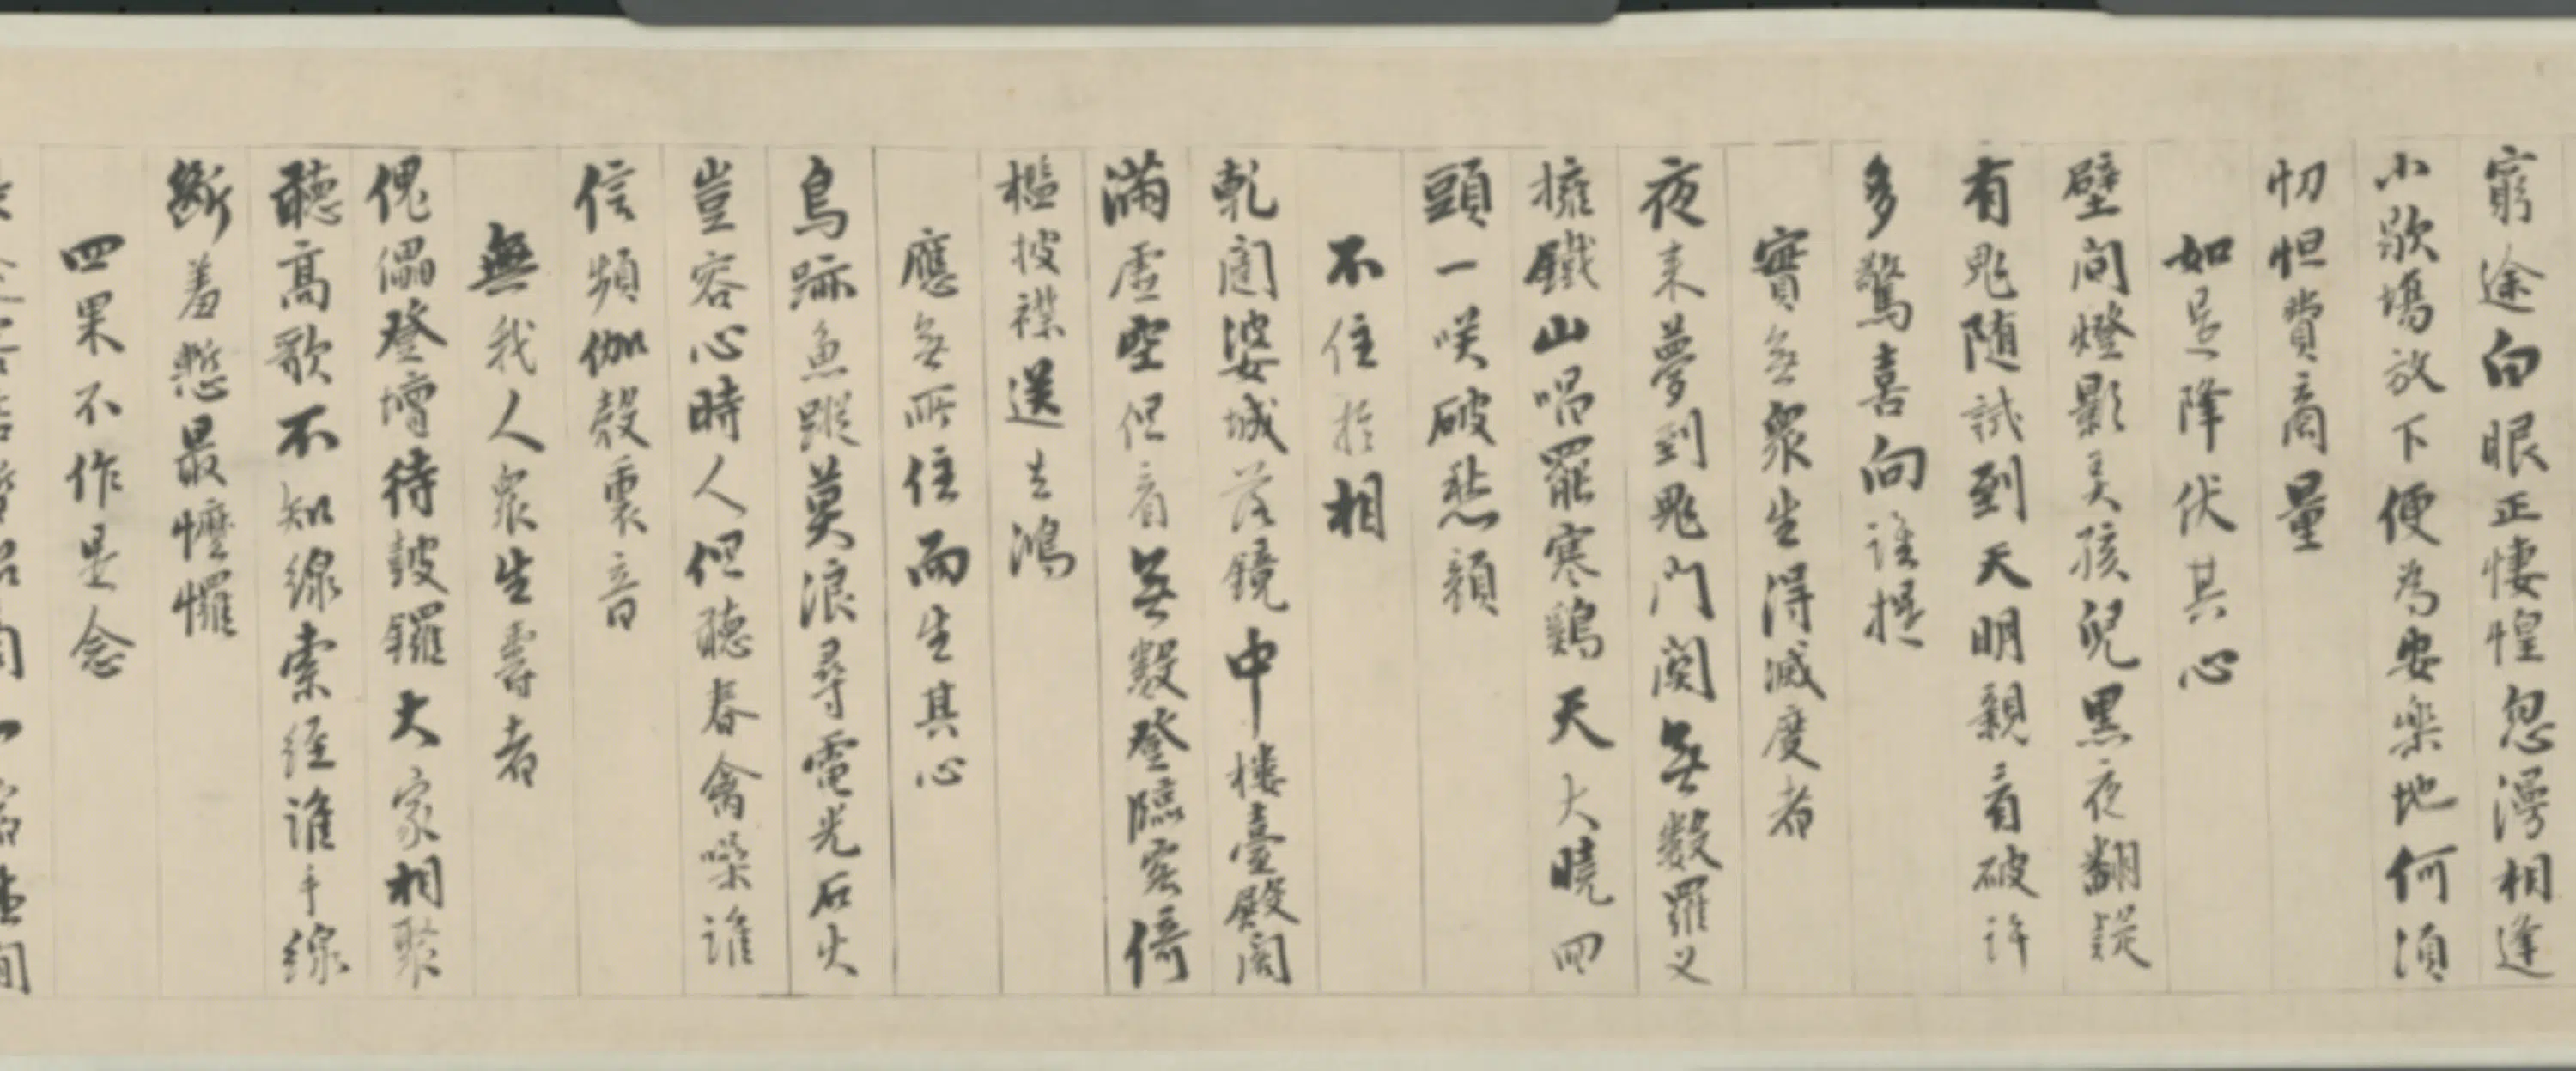 窮途白眼正悽惶忽漫相逢
小歇場放下便為安樂地何須
忉怛費商量
如是降伏其心
壁間燈影弄孩兒黑夜翻疑
有鬼隨試到天明親看破許
多驚喜向誰提
實無眾生得滅度者
夜來夢到鬼門關無數羅叉
擁鐵山唱罷寒鷄天大曉回
頭一咲破愁顏
不住於相
乾闥婆城落鏡中樓臺殿閣
滿虛空但看無數登臨客倚
檻披襟送去鴻
應無所住而生其心
鳥跡魚蹤莫浪尋電光石火
豈容心時人但聽春禽噪誰
信頻伽殼裏音
無我人眾生壽者
傀儡登壇待鼓鑼大家相聚
聽高歌不知線索經誰手線
斷羞慙最㦬㦬
四果不作是念